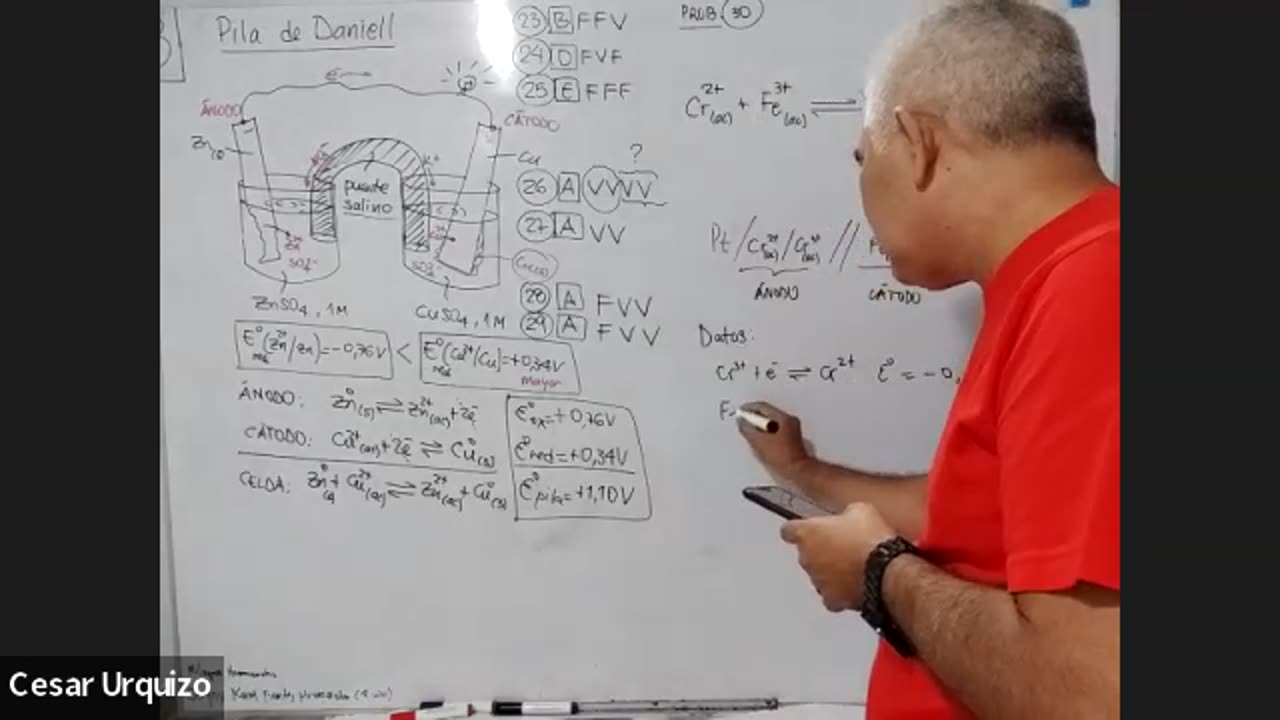 Pila de Daniell
e⁻ →
ÁNODO
CÁTODO
Zn(s)
Cu
puente
salino
SO₄²⁻
SO₄²⁻
Cu(s)
ZnSO₄, 1M
CuSO₄, 1M
E°red(Zn²⁺/Zn)=-0,76V < E°red(Cu²⁺/Cu)=+0,34V
mayor
ÁNODO: Zn°(s) ⇌ Zn²⁺(ac) + 2e⁻
CÁTODO: Cu²⁺(ac) + 2e⁻ ⇌ Cu°(s)
CELDA: Zn° + Cu²⁺(ac) ⇌ Zn²⁺(ac) + Cu°(s)
E°ox=+0,76V
E°red=+0,34V
E°pila=+1,10V
23 B FFV
24 D FVF
25 E FFF
?
26 A VVVV
27 A VV
28 A FVV
29 A FVV
PROB. 30
Cr²⁺(ac) + Fe³⁺(ac) ⇌
Pt / Cr²⁺(ac) / Cr³⁺(ac) //
ÁNODO
CÁTODO
Datos:
Cr³⁺ + e⁻ ⇌ Cr²⁺ E° = -0,
F
Cesar Urquizo